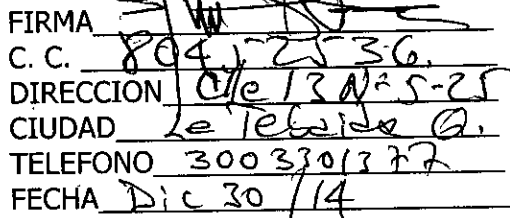 FIRMA
C. C.
DIRECCION Clle 13 Nº 5-25
CIUDAD La Tebaida Q.
TELEFONO 3003301377
FECHA Dic 30 / 14